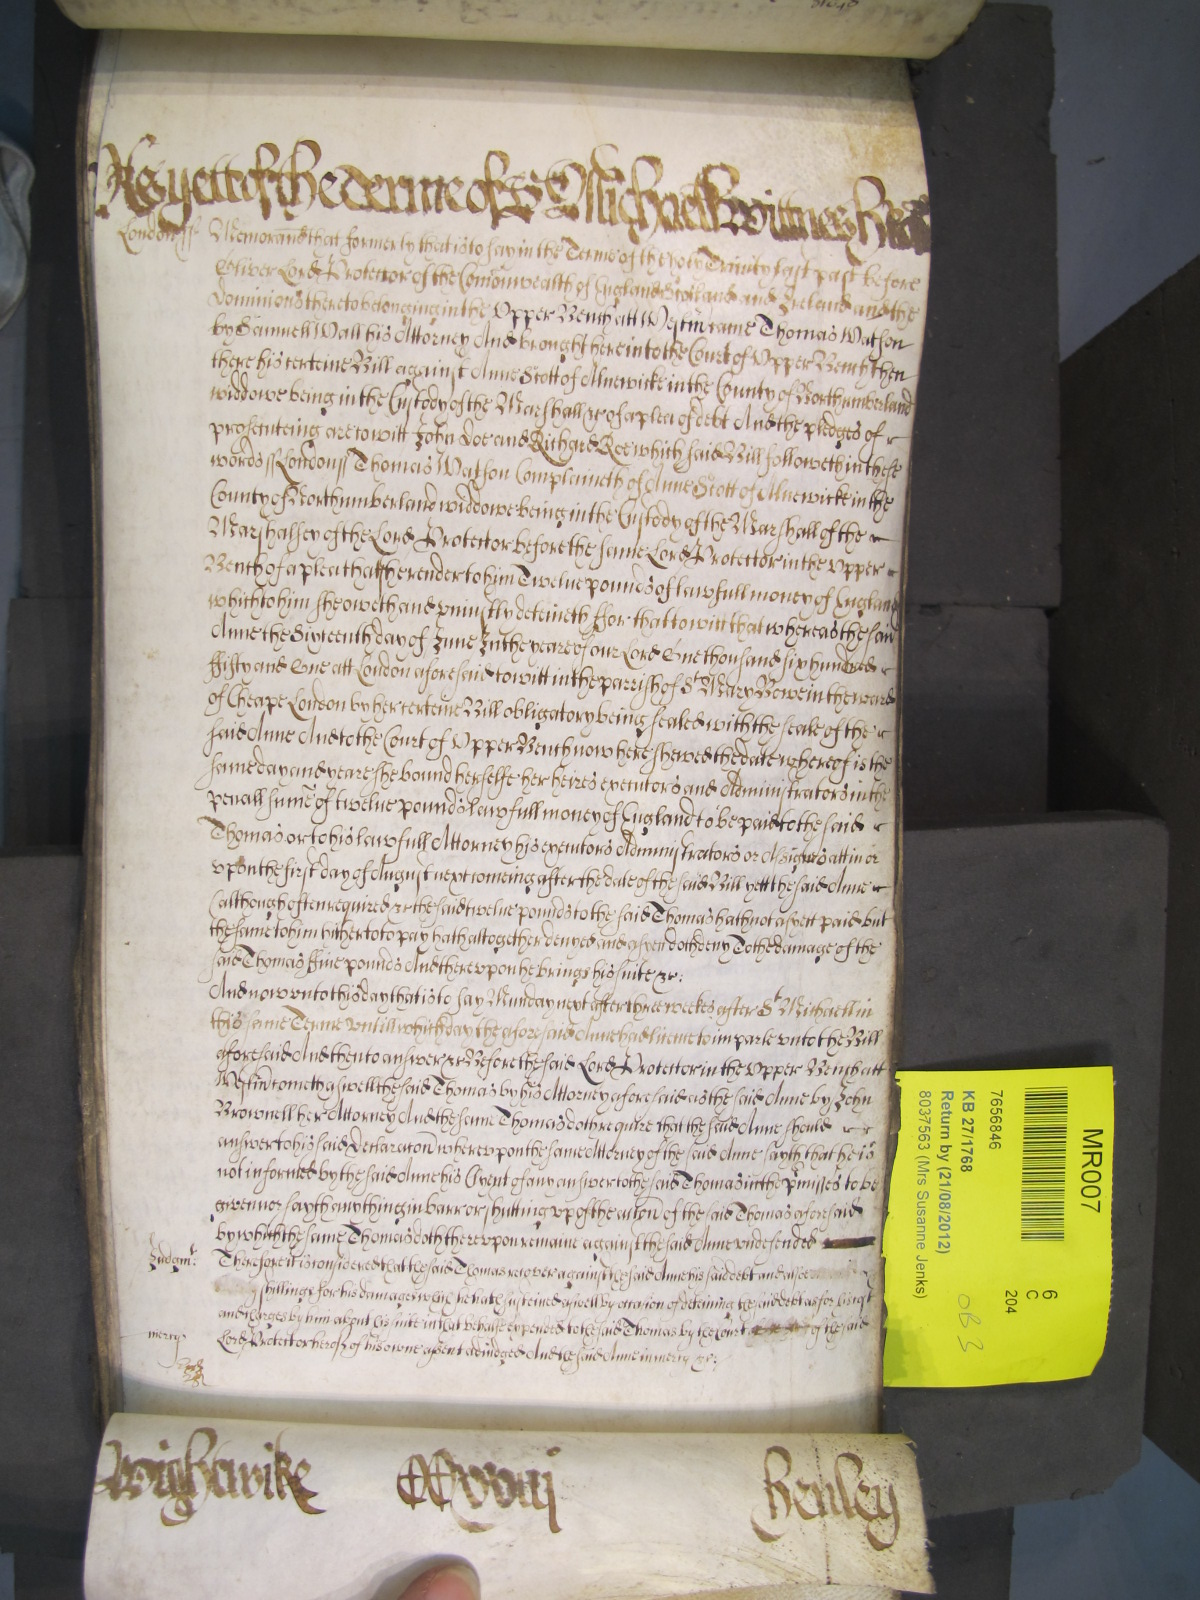 As yett of the Terme of St Michaell Wittnes Hen
London ss Memorand that formerly that is to say in the Terme of the holy Trinity last past before
Oliver Lord Protector of the Comonwealth of England Scotland and Ireland and the
dominions thereto belonging in the Upper Bench att Westm came Thomas Watson
by Samuell Wall his Attorney And brought here into the Court of Upper Bench then
there his certeine Bill against Anne Scott of Alnewicke in the County of Northumberland
widdowe being in the Custody of the Marshall &c of a plea of debt And the pledges of
prosecuteing are to witt John Doe and Richard Roe which said Bill followeth in these
words ss London ss Thomas Watson Complaineth of Anne Scott of Alnewicke in the
County of Northumberland widdowe being in the Custody of the Marshall of the
Marshalsey of the Lord Protector before the same Lord Protector in the Upper
Bench of a plea that she render to him Twelve pounds of lawfull money of England
which to him she oweth and uniustly deteineth ffor that to witt that whereas the said
Anne the Sixteenth day of June In the yeare of our Lord One thousand six hundred
ffifty and One att London aforesaid to witt in the parrish of St Mary Bowe in the ward
of Cheape London by her certeine Bill obligatory being sealed with the seale of the
said Anne And to the Court of Upper Bench now here shewed the date whereof is the
same day and yeare she bound herselfe her heires executors and Administrators in the
penall sume of twelve pounds lawfull money of England to be paid to the said
Thomas or to his lawfull Attorney his executors Administrators or Assignes att in or
upon the first day of August next comeing after the date of the said Bill yett the said Anne
(although often required &c the said twelve pounds to the said Thomas hath not as yett paid but
the same to him hitherto to pay hath altogether denyed and as yet doth deny To the damage of the
said Thomas ffive pounds And thereupon he brings his suite &c:
And now unto this day that is to say Munday next after three weekes after St Michaell in
this same Terme untill which day the aforesaid Anne had licence to imparle unto the Bill
aforesaid And then to answer &c Before the said Lord Protector in the Upper Bench att
Westm cometh aswell the said Thomas by his Attorney aforesaid as the said Anne by John
Brownell her Attorney And the same Thomas doth require that the said Anne should
answer to his said Declaracon whereupon the same Attorney of the said Anne sayth that he is
not informed by the said Anne his Clyent of any answer to the said Thomas in the pmisses to be
given nor sayth any thing in barr or shutting up of the accon of the said Thomas aforesaid
by which the same Thomas doth thereupon remaine against the said Anne undefended
Judgmt: Therefore it is considered that the said Thomas recover against the said Anne his said debt and alsoe
shillings for his damages which he hath susteined aswell by occasion of deteining the said debt as for his cost
and charges by him about his suite in that behalfe expended to the said Thomas by the Court of the said
mercy Lord Protector here of his owne assent adiudged And the said Anne in mercy &c:
Wightwike CCxviij Henley
MR007
6
C
204
7656846
KB 27/1768
Return by (21/08/2012)
8037563 (Mrs Susanne Jenks)
OB 3